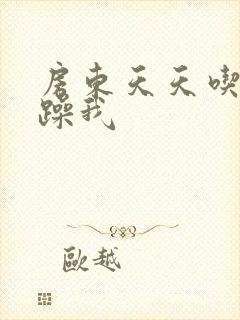 房東天天喫
躁我
歐越